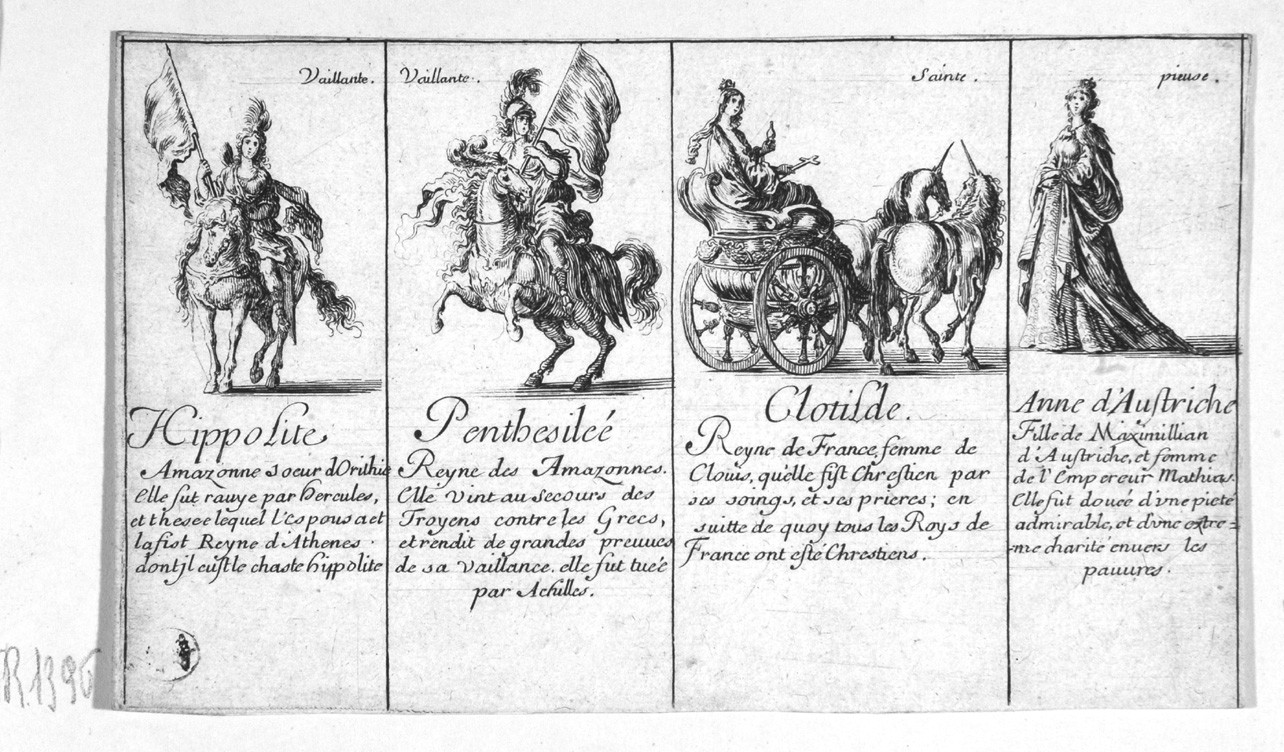 Vaillante.
Hippolite
Amazonne soeur d'Orithie
Elle fut rauye par Hercules,
et thesee lequel l'espousa et
la fist Reyne d'Athenes.
dont jl eust le chaste hippolite
Vaillante.
Penthesileé
Reyne des Amazonnes.
Elle vint au secours des
Troyens contre les Grecs,
et rendit de grandes preuues
de sa vaillance. elle fut tueé
par Achilles.
Sainte.
Clotilde.
Reyne de France, femme de
Clouis, qu'elle fist Chrestien par
ses soings, et ses prieres; en
suitte de quoy tous les Roys de
France ont esté Chrestiens.
pieuse.
Anne d'Austriche
Fille de Maximillian
d'Austriche, et femme
de l'Empereur Mathias.
Elle fut doueé d'vne pieté
admirable, et d'vne extre=
-me charité enuers les
pauures.
R.1396